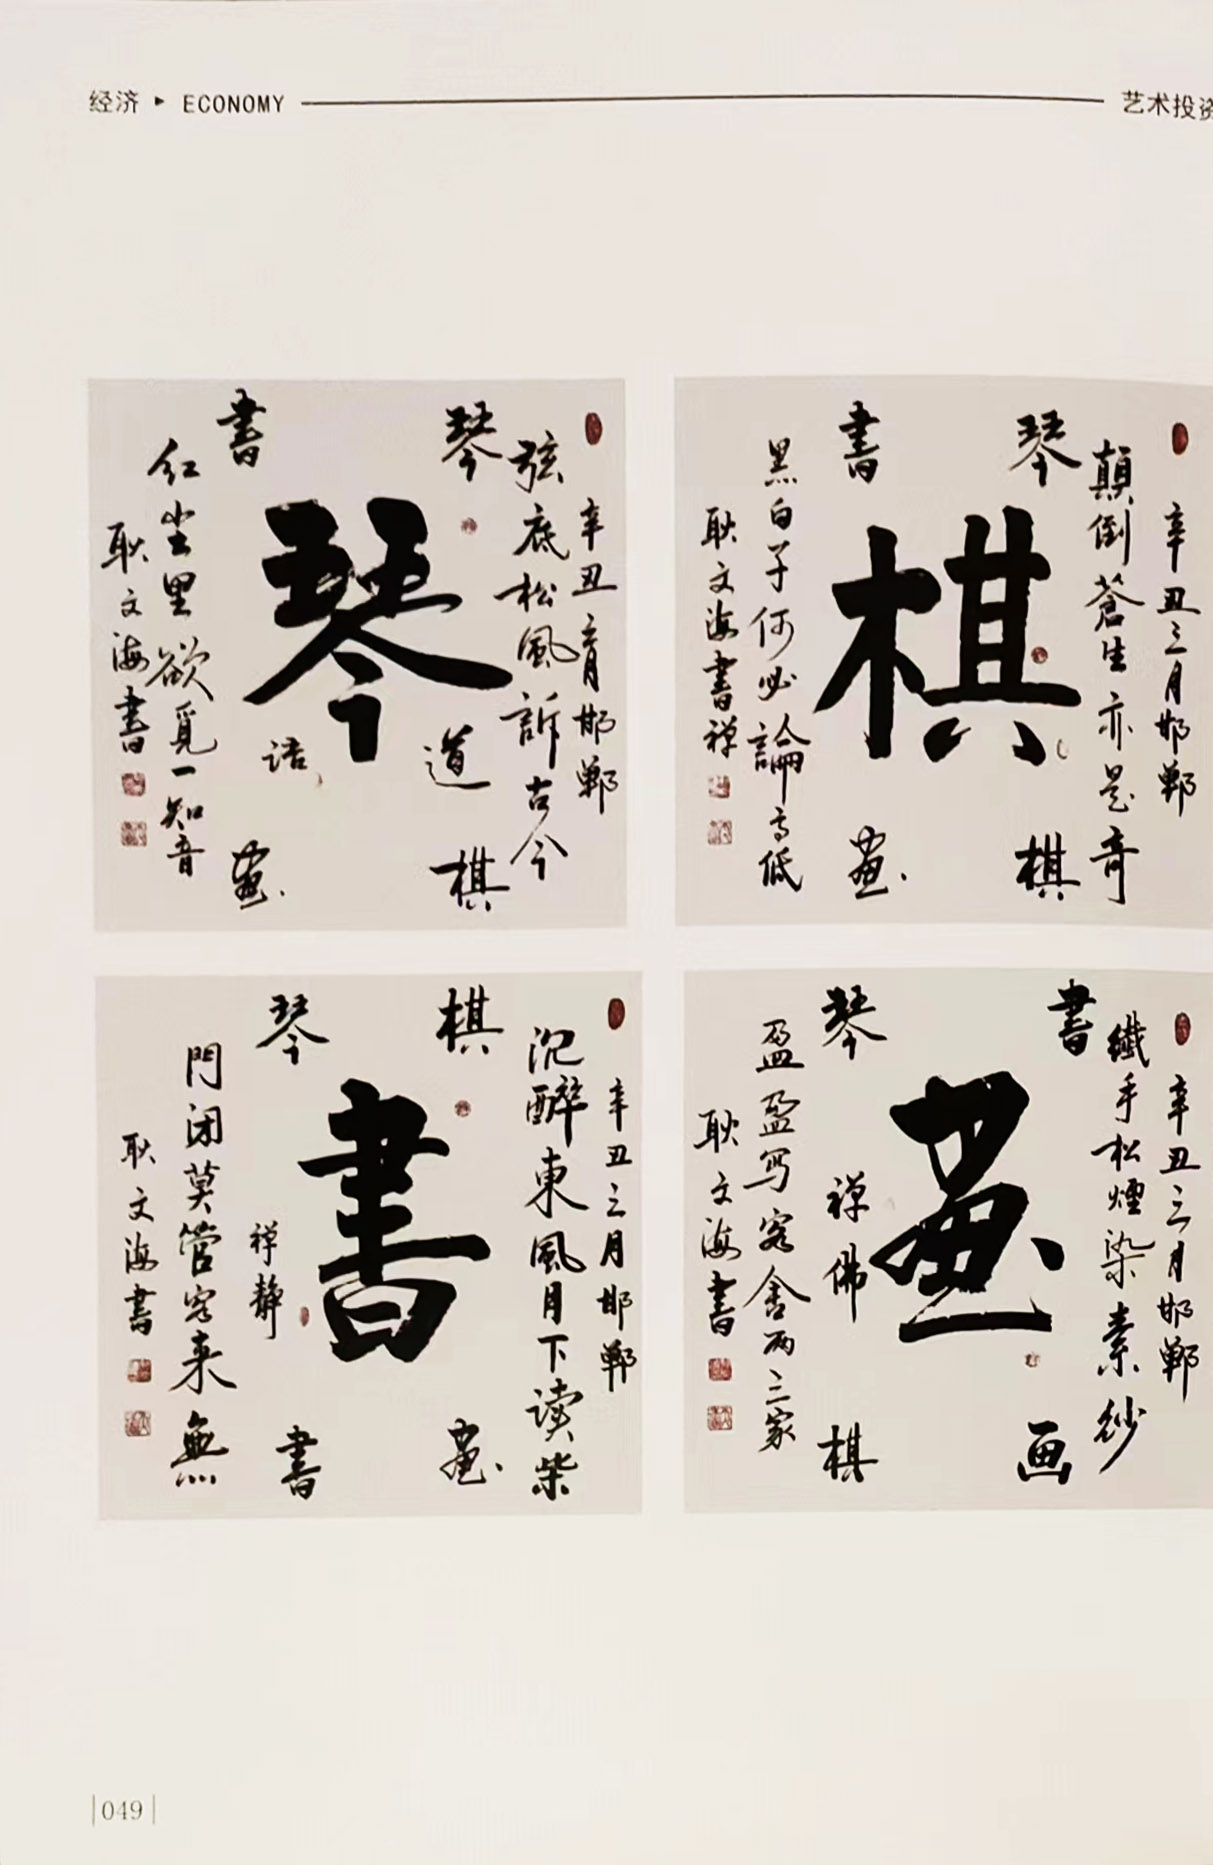 经济 ▸ ECONOMY
艺术投资
辛丑三月邯郸
弦底松風訴古今
琴
棋
書
畫
琴
道
语
红尘里欲覓一知音
耿文海書
辛丑三月邯郸
顛倒蒼生亦是奇
琴
棋
書
畫
棋
黑白子何必論高低
耿文海書禅
辛丑三月邯郸
沉醉東風月下读柴
棋
畫
琴
書
書
禅靜
門闭莫管客来無
耿文海書
辛丑三月邯郸
纖手松煙染素紗
書
画
琴
棋
畫
禅佛
盈盈写客舍两三家
耿文海書
|049|